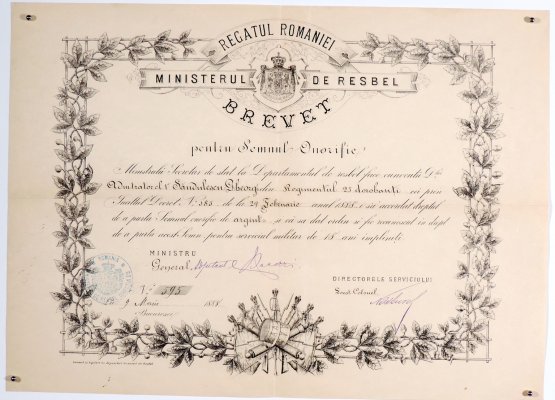 REGATUL ROMANIEI
MINISTERUL DE RESBEL
BREVET
pentru Semnul Onorific
Ministrul Secretar de stat la Departamentul de resbel face cunoscut D-lui
Sandulescu Gheorghe din Regimentul 25 dorobanti că prin
Inaltul Decret No 585 de la 24 Februarie anul 1888, i s'a acordat dreptul
de a purta Semnul onorific de argint, se va da ordin se fie recunoscut in drept
de a purta acest Semn pentru serviciul militar de 18 ani impliniti.
MINISTRU
General
DIRECTORELE SERVICIULUI
Locot. Colonel
No 595
9 Martie 1888
Bucuresci